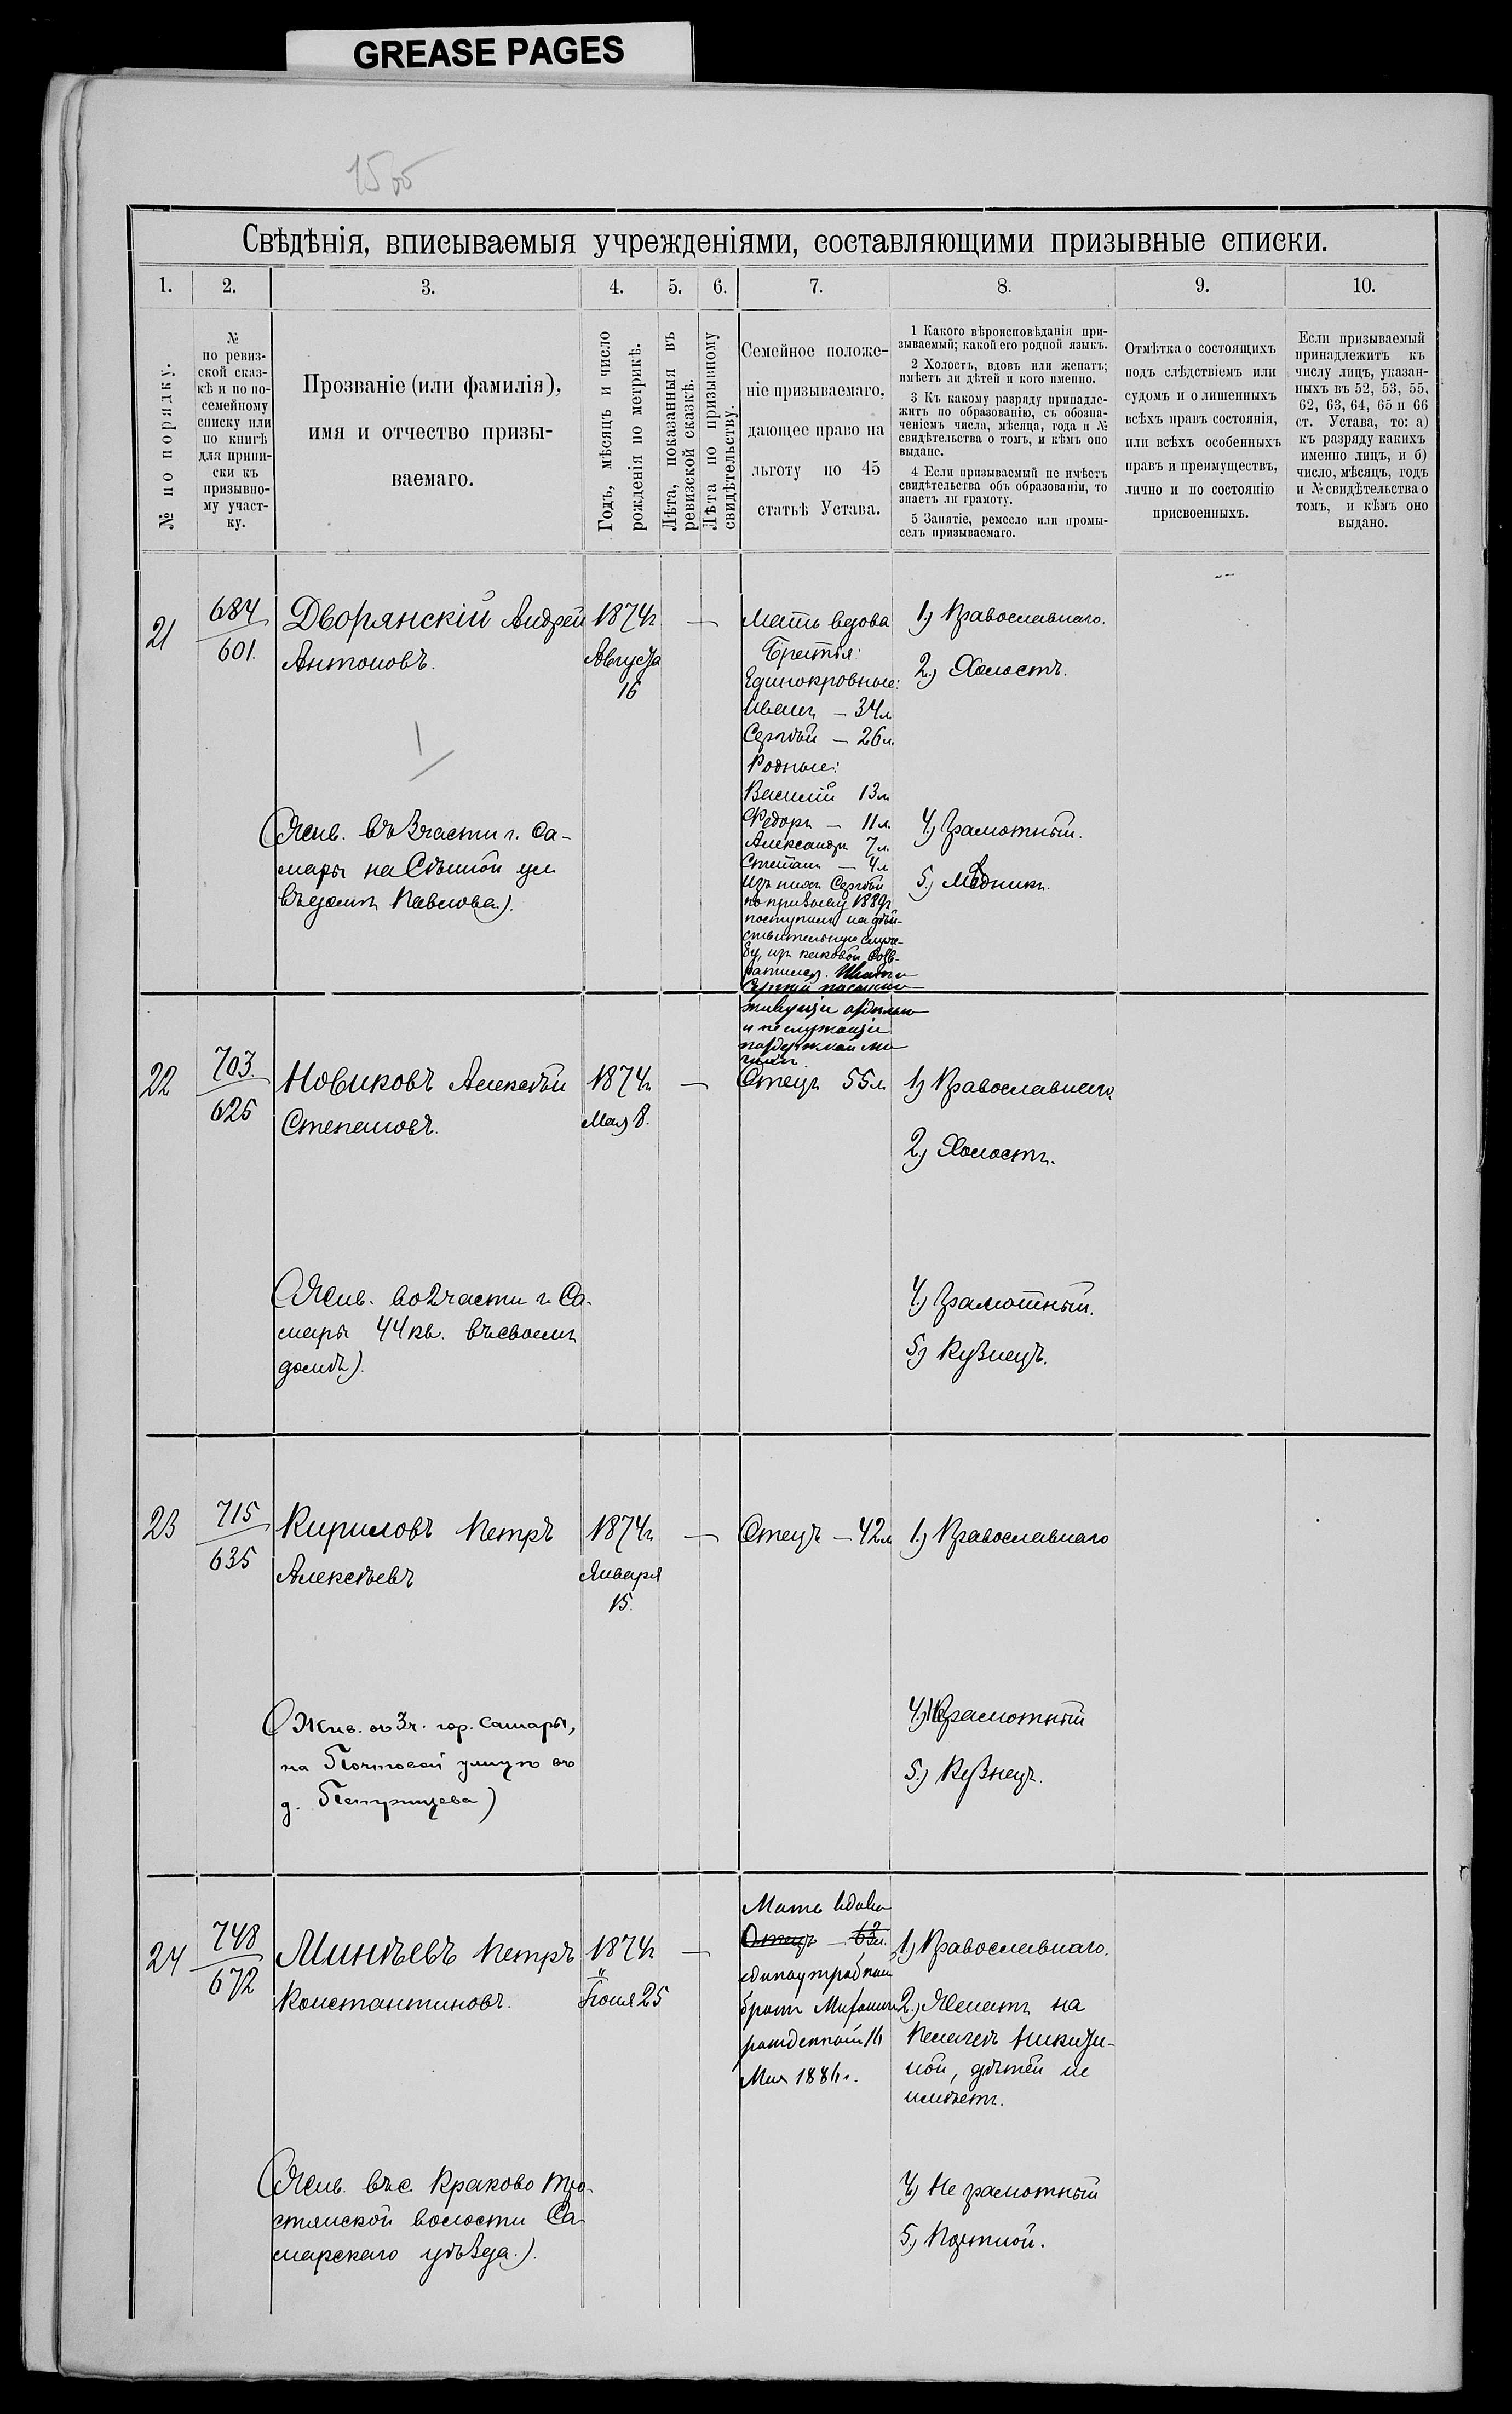 GREASE PAGES
Свѣдѣнія, вписываемыя учрежденіями, составляющими призывные списки.
1. 2. 3. 4. 5. 6. 7. 8. 9. 10.
№ по порядку.
№
по ревиз-
ской сказ-
кѣ и по по-
семейному
списку или
по книгѣ
для припи-
ски къ
призывно-
му участ-
ку.
Прозваніе (или фамилія),
имя и отчество призы-
ваемаго.
Годъ, мѣсяцъ и число
рожденія по метрикѣ.
Лѣта, показанныя въ
ревизской сказкѣ.
Лѣта по призывному
свидѣтельству.
Семейное положе-
ніе призываемаго,
дающее право на
льготу по 45
статьѣ Устава.
1 Какого вѣроисповѣданія при-
зываемый; какой его родной языкъ.
2 Холостъ, вдовъ или женатъ;
имѣетъ ли дѣтей и кого именно.
3 Къ какому разряду принадле-
житъ по образованію, съ обозна-
ченіемъ числа, мѣсяца, года и №
свидѣтельства о томъ, и кѣмъ оно
выдано.
4 Если призываемый не имѣетъ
свидѣтельства объ образованіи, то
знаетъ ли грамоту.
5 Занятіе, ремесло или промы-
селъ призываемаго.
Отмѣтка о состоящихъ
подъ слѣдствіемъ или
судомъ и о лишенныхъ
всѣхъ правъ состоянія,
или всѣхъ особенныхъ
правъ и преимуществъ,
лично и по состоянію
присвоенныхъ.
Если призываемый
принадлежитъ къ
числу лицъ, указан-
ныхъ въ 52, 53, 55,
62, 63, 64, 65 и 66
ст. Устава, то: а)
къ разряду какихъ
именно лицъ, и б)
число, мѣсяцъ, годъ
и № свидѣтельства о
томъ, и кѣмъ оно
выдано.
21
684
601.
Дворянскій Андрей
Антоновъ.
(Жив. въ 3 части г. Са-
мары на Сѣнной ул
въ домѣ Павлова.).
1874 г.
Августа
16
—
Мать вдова
Братья:
Единокровные:
Иванъ — 34 л.
Сергѣй — 26 л.
Родные:
Василій 13 л.
Ѳедоръ — 11 л.
Александръ 7 л.
Степанъ — 4 л.
Изъ нихъ Сергѣй
по призыву 1889 г.
поступилъ на дѣй-
ствительную служ-
бу, изъ каковой возв-
ратился.
живущіе отдѣльно
и не служащіе
1) Православнаго.
2.) Холостъ.
4.) Грамотный.
5.) Мѣдникъ.
22
703.
625
Новиковъ Алексѣй
Степановъ.
(Жив. во 2 части г. Са-
мары 44 кв. въ своемъ
домѣ).
1874 г.
Мая 8.
—
Отецъ 55 л.
1) Православнаго
2.) Холостъ.
4.) Грамотный.
5) Кузнецъ.
23
715
635
Кириловъ Петръ
Алексѣевъ
(Жив. въ 3 ч. гор. Самары,
на Почтовой улицѣ въ
д.
1874 г.
Января
15.
—
Отецъ — 42 л.
1.) Православнаго
4.) Грамотный
5.) Кузнецъ.
24
748
672
Минѣевъ Петръ
Константиновъ.
(Жив. въ с. Краково
волости Са-
марскаго уѣзда.).
1874 г.
Іюня 25
—
Мать вдова
Отецъ —
единоутробный
братъ
рожденный
Мая
1.) Православнаго.
2.) Женатъ на
Пелагеѣ Никити-
ной, дѣтей не
имѣетъ.
4.) Не грамотный
5.) Портной.